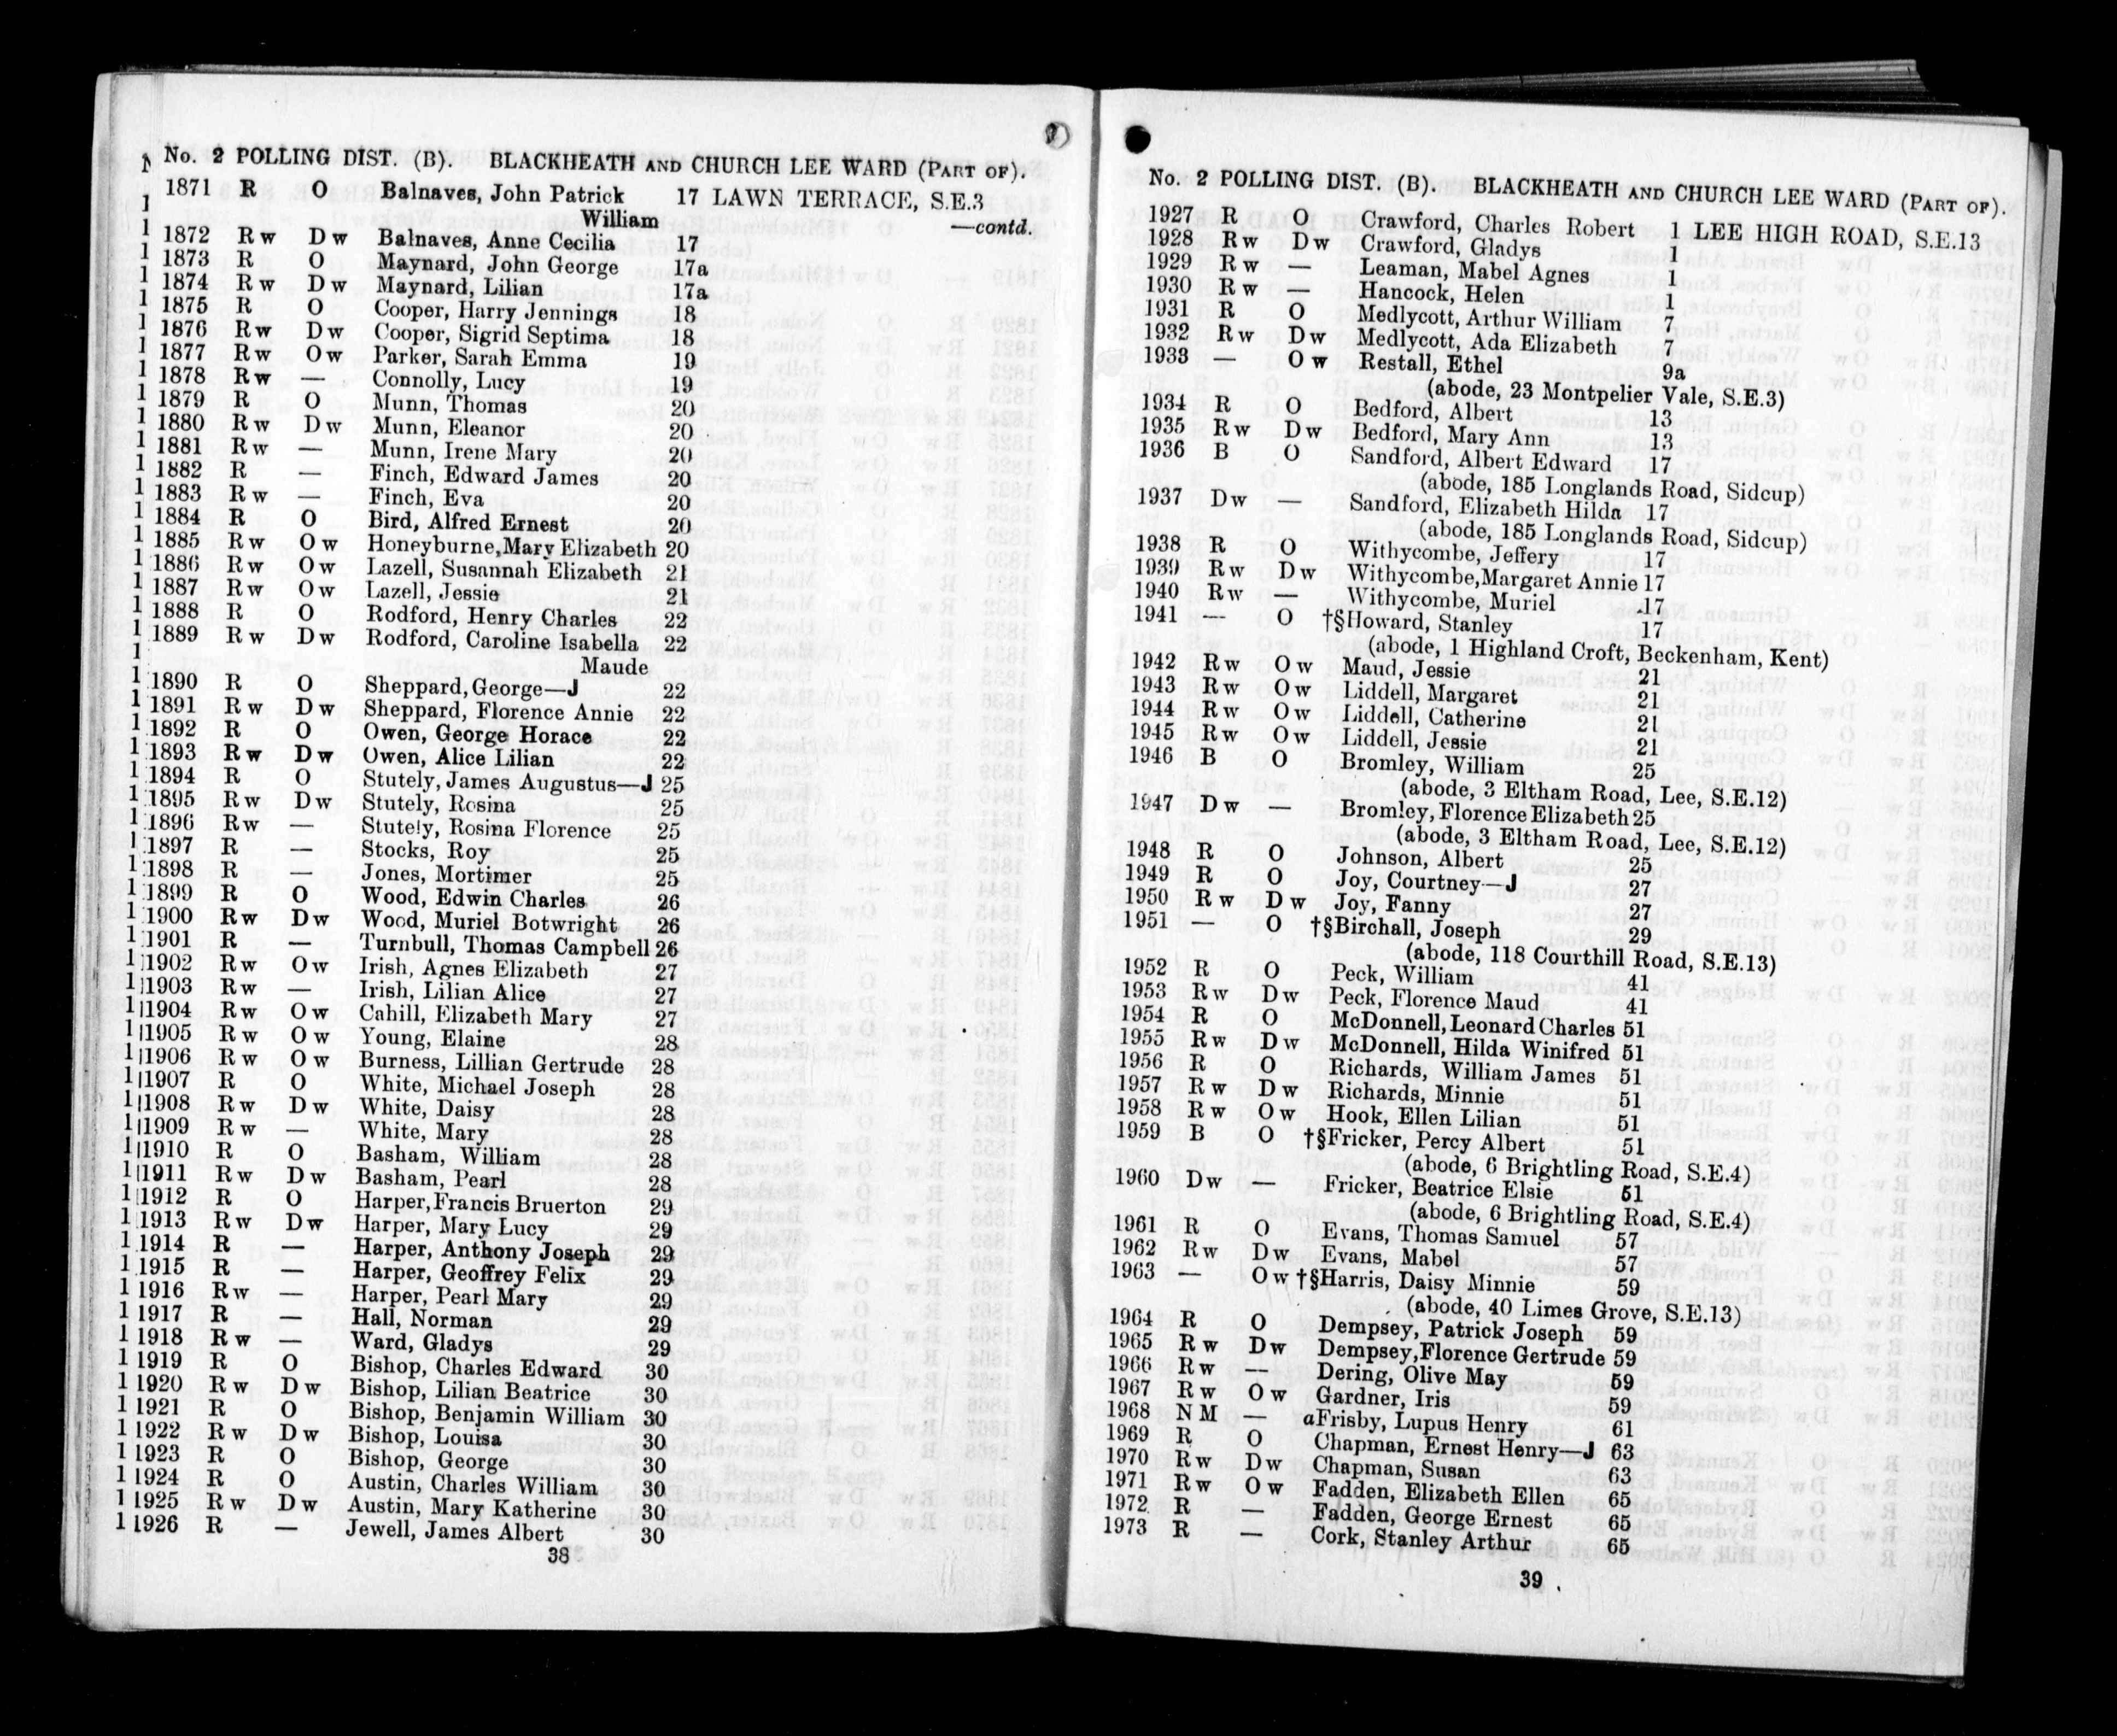 No. 2 POLLING DIST. (B). BLACKHEATH AND CHURCH LEE WARD (PART OF).
1871 R O Balnaves, John Patrick 17 LAWN TERRACE, S.E.3
William —contd.
1872 Rw Dw Balnaves, Anne Cecilia 17
1873 R O Maynard, John George 17a
1874 Rw Dw Maynard, Lilian 17a
1875 R O Cooper, Harry Jennings 18
1876 Rw Dw Cooper, Sigrid Septima 18
1877 Rw Ow Parker, Sarah Emma 19
1878 Rw — Connolly, Lucy 19
1879 R O Munn, Thomas 20
1880 Rw Dw Munn, Eleanor 20
1881 Rw — Munn, Irene Mary 20
1882 R — Finch, Edward James 20
1883 Rw — Finch, Eva 20
1884 R O Bird, Alfred Ernest 20
1885 Rw Ow Honeyburne, Mary Elizabeth 20
1886 Rw Ow Lazell, Susannah Elizabeth 21
1887 Rw Ow Lazell, Jessie 21
1888 R O Rodford, Henry Charles 22
1889 Rw Dw Rodford, Caroline Isabella 22
Maude
1890 R O Sheppard, George—J 22
1891 Rw Dw Sheppard, Florence Annie 22
1892 R O Owen, George Horace 22
1893 Rw Dw Owen, Alice Lilian 22
1894 R O Stutely, James Augustus—J 25
1895 Rw Dw Stutely, Rosina 25
1896 Rw — Stutely, Rosina Florence 25
1897 R — Stocks, Roy 25
1898 R — Jones, Mortimer 25
1899 R O Wood, Edwin Charles 26
1900 Rw Dw Wood, Muriel Botwright 26
1901 R — Turnbull, Thomas Campbell 26
1902 Rw Ow Irish, Agnes Elizabeth 27
1903 Rw — Irish, Lilian Alice 27
1904 Rw Ow Cahill, Elizabeth Mary 27
1905 Rw Ow Young, Elaine 28
1906 Rw Ow Burness, Lillian Gertrude 28
1907 R O White, Michael Joseph 28
1908 Rw Dw White, Daisy 28
1909 Rw — White, Mary 28
1910 R O Basham, William 28
1911 Rw Dw Basham, Pearl 28
1912 R O Harper, Francis Bruerton 29
1913 Rw Dw Harper, Mary Lucy 29
1914 R — Harper, Anthony Joseph 29
1915 R — Harper, Geoffrey Felix 29
1916 Rw — Harper, Pearl Mary 29
1917 R — Hall, Norman 29
1918 Rw — Ward, Gladys 29
1919 R O Bishop, Charles Edward 30
1920 Rw Dw Bishop, Lilian Beatrice 30
1921 R O Bishop, Benjamin William 30
1922 Rw Dw Bishop, Louisa 30
1923 R O Bishop, George 30
1924 R O Austin, Charles William 30
1925 Rw Dw Austin, Mary Katherine 30
1926 R — Jewell, James Albert 30
38
No. 2 POLLING DIST. (B). BLACKHEATH AND CHURCH LEE WARD (PART OF).
1927 R O Crawford, Charles Robert 1 LEE HIGH ROAD, S.E.13
1928 Rw Dw Crawford, Gladys 1
1929 Rw — Leaman, Mabel Agnes 1
1930 Rw — Hancock, Helen 1
1931 R O Medlycott, Arthur William 7
1932 Rw Dw Medlycott, Ada Elizabeth 7
1933 — Ow Restall, Ethel 9a
(abode, 23 Montpelier Vale, S.E.3)
1934 R O Bedford, Albert 13
1935 Rw Dw Bedford, Mary Ann 13
1936 B O Sandford, Albert Edward 17
(abode, 185 Longlands Road, Sidcup)
1937 Dw — Sandford, Elizabeth Hilda 17
(abode, 185 Longlands Road, Sidcup)
1938 R O Withycombe, Jeffery 17
1939 Rw Dw Withycombe, Margaret Annie 17
1940 Rw — Withycombe, Muriel 17
1941 — O †§Howard, Stanley 17
(abode, 1 Highland Croft, Beckenham, Kent)
1942 Rw Ow Maud, Jessie 21
1943 Rw Ow Liddell, Margaret 21
1944 Rw Ow Liddell, Catherine 21
1945 Rw Ow Liddell, Jessie 21
1946 B O Bromley, William 25
(abode, 3 Eltham Road, Lee, S.E.12)
1947 Dw — Bromley, Florence Elizabeth 25
(abode, 3 Eltham Road, Lee, S.E.12)
1948 R O Johnson, Albert 25
1949 R O Joy, Courtney—J 27
1950 Rw Dw Joy, Fanny 27
1951 — O †§Birchall, Joseph 29
(abode, 118 Courthill Road, S.E.13)
1952 R O Peck, William 41
1953 Rw Dw Peck, Florence Maud 41
1954 R O McDonnell, Leonard Charles 51
1955 Rw Dw McDonnell, Hilda Winifred 51
1956 R O Richards, William James 51
1957 Rw Dw Richards, Minnie 51
1958 Rw Ow Hook, Ellen Lilian 51
1959 B O †§Fricker, Percy Albert 51
(abode, 6 Brightling Road, S.E.4)
1960 Dw — Fricker, Beatrice Elsie 51
(abode, 6 Brightling Road, S.E.4)
1961 R O Evans, Thomas Samuel 57
1962 Rw Dw Evans, Mabel 57
1963 — Ow †§Harris, Daisy Minnie 59
(abode, 40 Limes Grove, S.E.13)
1964 R O Dempsey, Patrick Joseph 59
1965 Rw Dw Dempsey, Florence Gertrude 59
1966 Rw — Dering, Olive May 59
1967 Rw Ow Gardner, Iris 59
1968 NM — aFrisby, Lupus Henry 61
1969 R O Chapman, Ernest Henry—J 63
1970 Rw Dw Chapman, Susan 63
1971 Rw Ow Fadden, Elizabeth Ellen 65
1972 R — Fadden, George Ernest 65
1973 R — Cork, Stanley Arthur 65
39